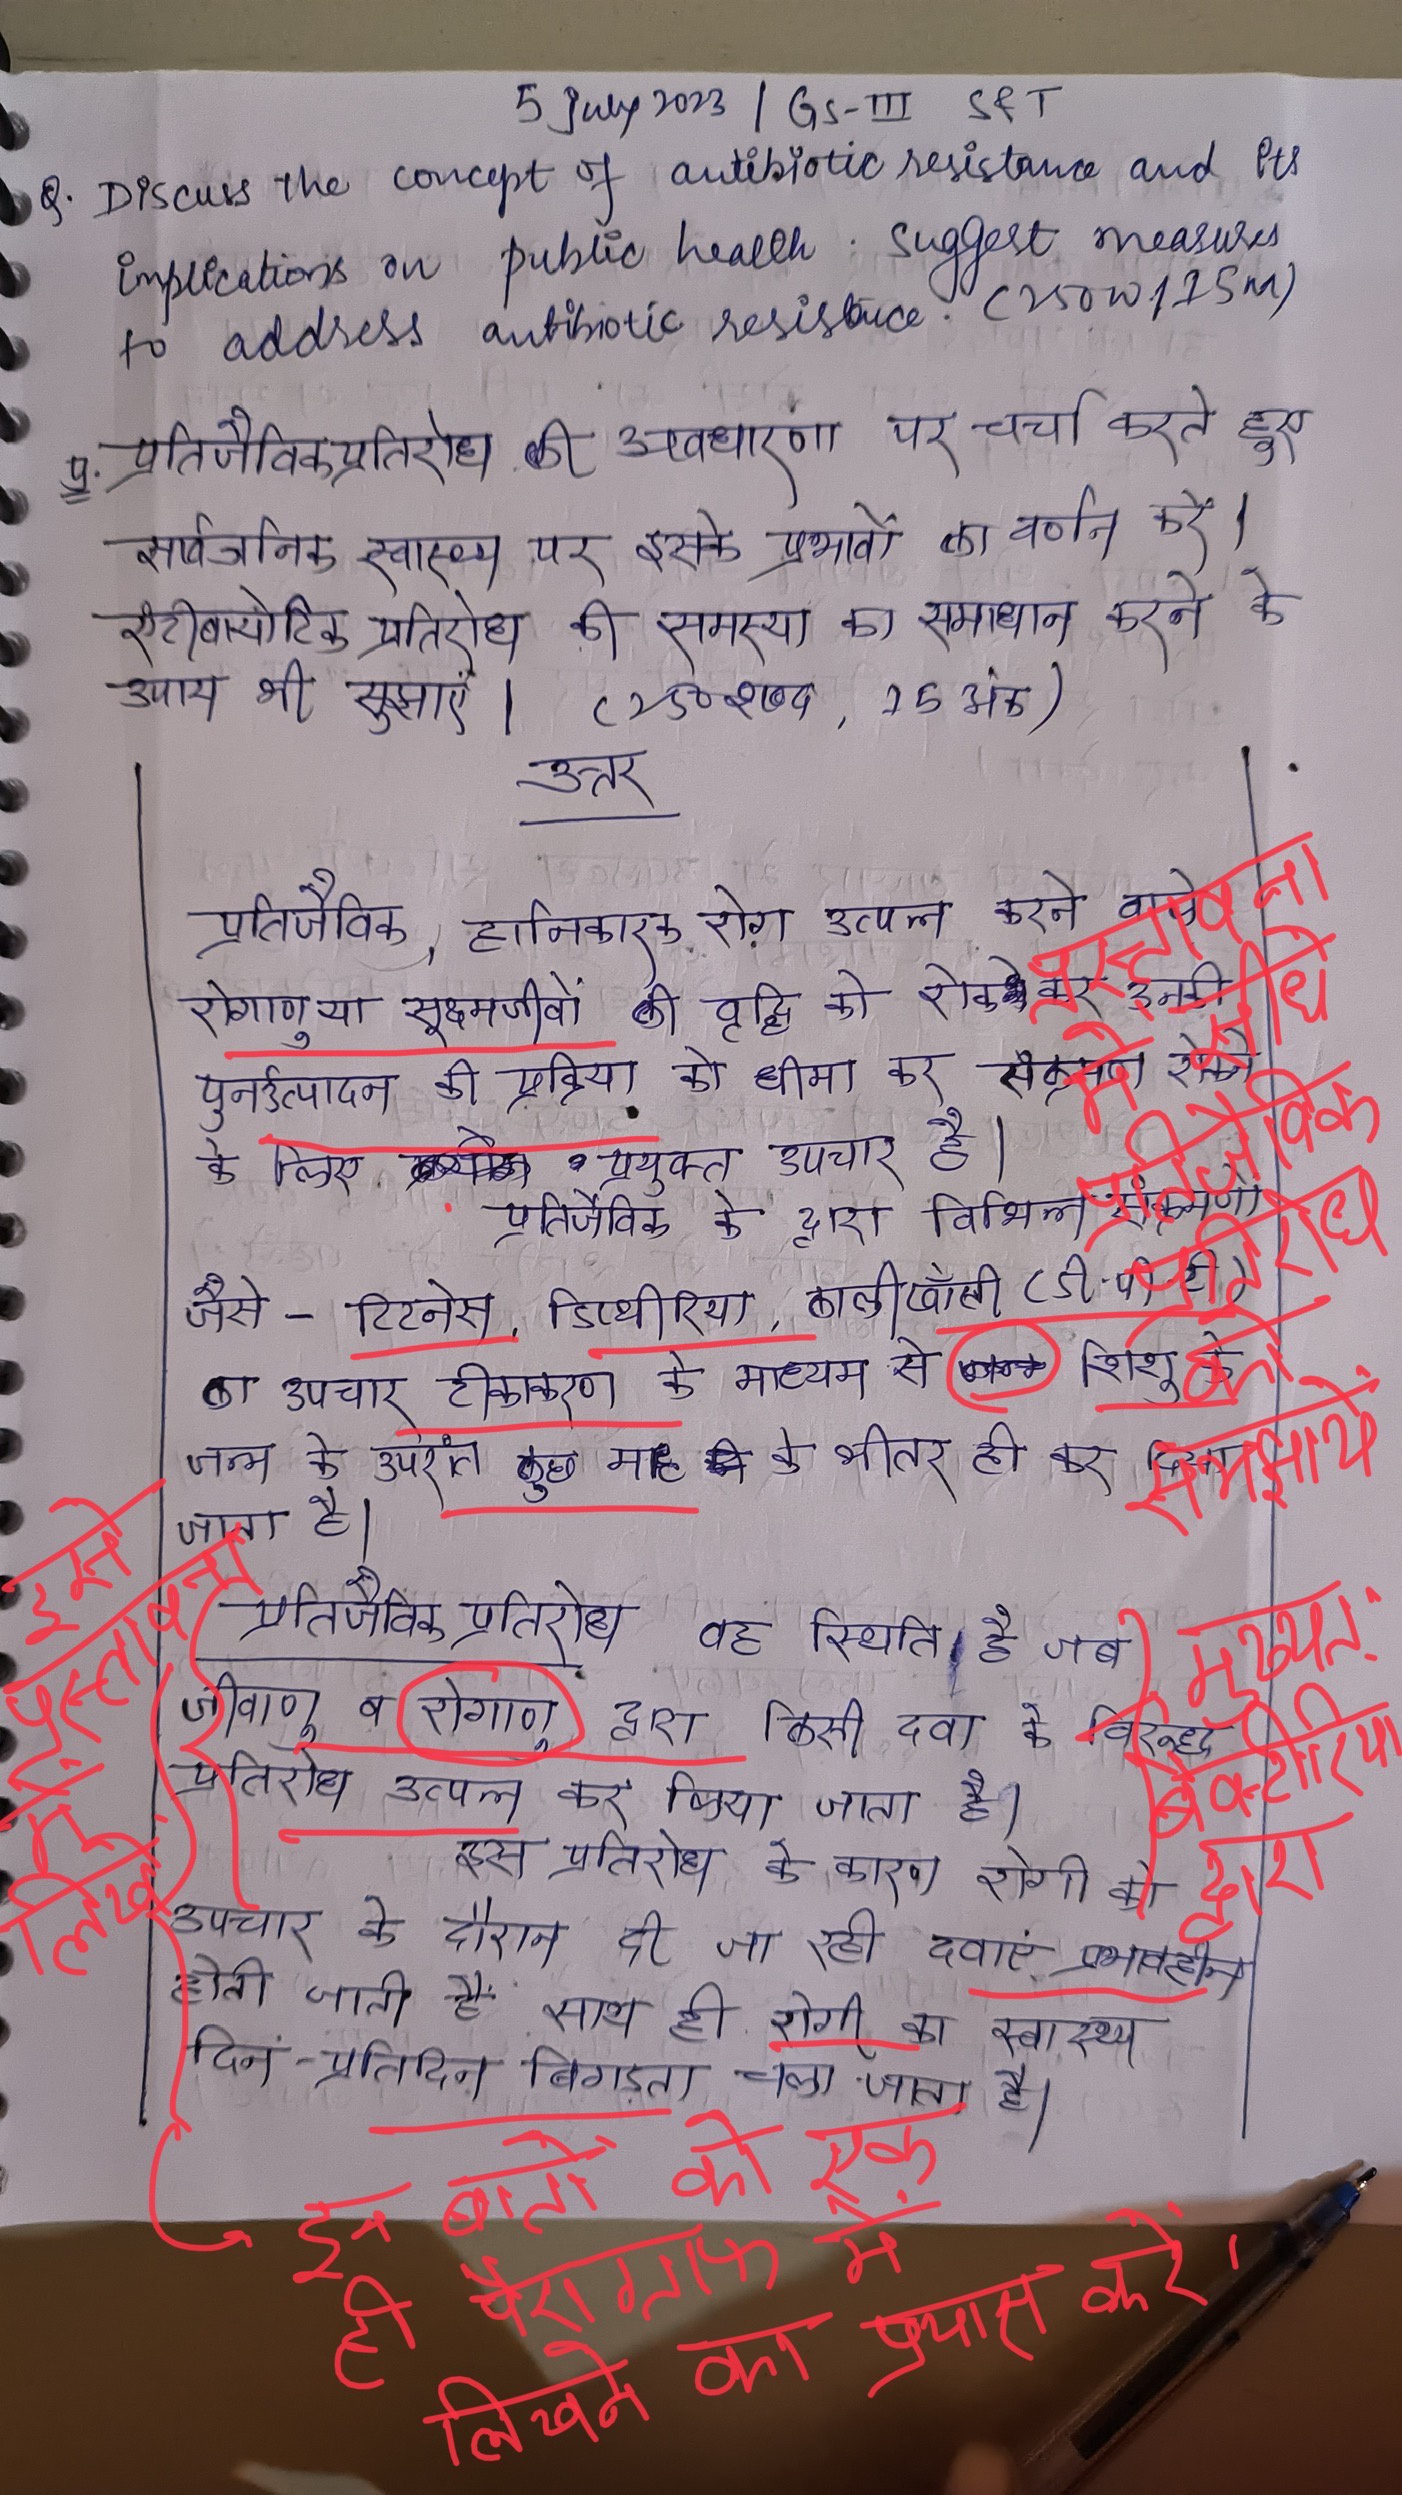 5 July 2023 / GS-III S&T
Q. Discuss the concept of antibiotic resistance and its
implications on public health. Suggest measures
to address antibiotic resistance. (250W/15M)
प्र. प्रतिजैविक प्रतिरोध की अवधारणा पर चर्चा करते हुए
सार्वजनिक स्वास्थ्य पर इसके प्रभावों का वर्णन करें।
एंटीबायोटिक प्रतिरोध की समस्या का समाधान करने के
उपाय भी सुझाएं। (250 शब्द, 15 अंक)
उत्तर
प्रतिजैविक, हानिकारक रोग उत्पन्न करने वाले
रोगाणु या सूक्ष्मजीवों की वृद्धि को रोककर इनकी
पुनर्उत्पादन की प्रक्रिया को धीमा कर संक्रमण रोकने
के लिए प्रयुक्त उपचार है।
प्रतिजैविक के द्वारा विभिन्न संक्रमणों
जैसे - टिटनेस, डिप्थीरिया, कालीखाँसी (डी.पी.टी)
का उपचार टीकाकरण के माध्यम से शिशु के
जन्म के उपरांत कुछ माह के भीतर ही कर दिया
जाता है।
प्रतिजैविक प्रतिरोध वह स्थिति है जब
जीवाणु व रोगाणु द्वारा किसी दवा के विरुद्ध
प्रतिरोध उत्पन्न कर लिया जाता है।
इस प्रतिरोध के कारण रोगी को
उपचार के दौरान दी जा रही दवाएं प्रभावहीन
होती जाती हैं साथ ही रोगी का स्वास्थ्य
दिन-प्रतिदिन बिगड़ता चला जाता है।
प्रस्तावना
में सीधे
प्रतिजैविक
प्रतिरोध
को
समझायें
इसे
प्रस्तावना
में
लिखें
मुख्यतः
बैक्टीरिया
द्वारा
इन बातों को एक
ही पैराग्राफ में
लिखने का प्रयास करें।